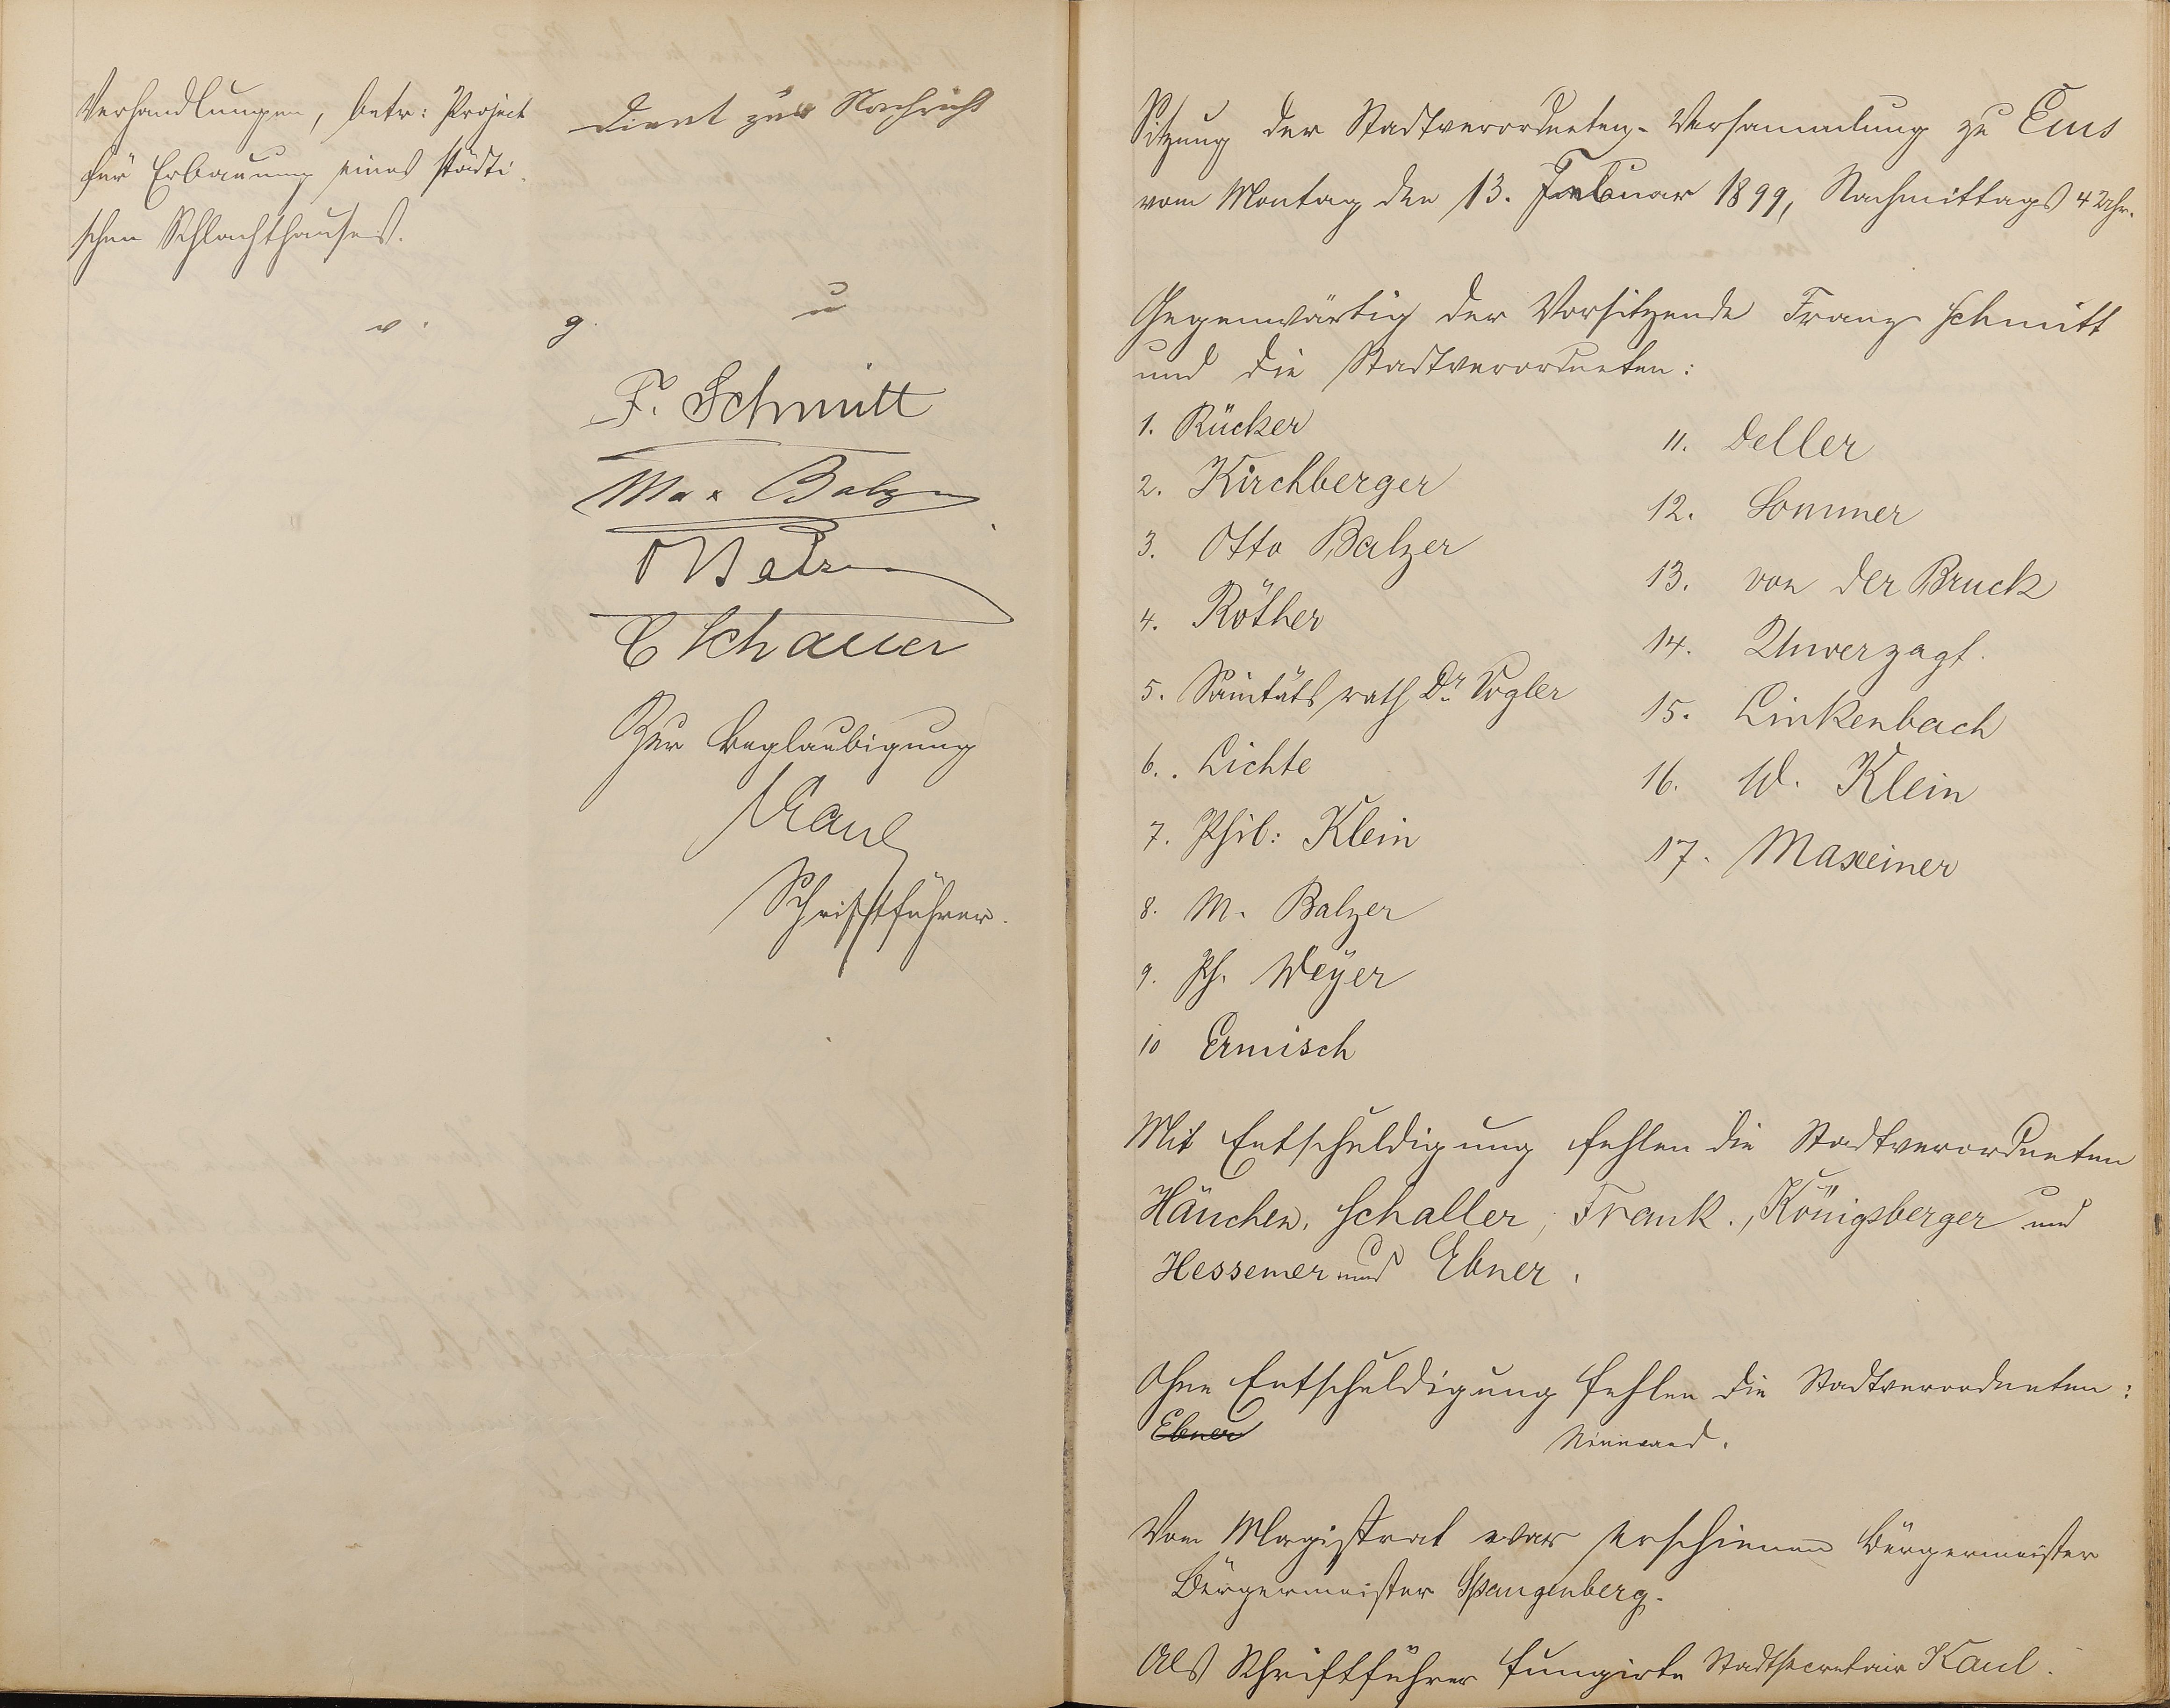 Verhandlungen, betr: Project
für Erbauung eines städti-
schen Schlachthauses.
dient zur Nachricht
v. g. u
F. Schmitt
Max Balzer
O Balzer
C Schauer
Zur Beglaubigung
Kaul
Schriftführer.
Sitzung der Stadtverordneten-Versammlung zu Ems
vom Montag den 13. Februar 1899, Nachmittags 4 Uhr.
Gegenwärtig der Vorsitzende Franz Schmitt
und die Stadtverordneten:
1. Rücker
2. Kirchberger
3. Otto Balzer
4. Röther
5. Sanitätsrath Dr. Vogler
6. Lichte
7. Phil: Klein
8. M. Balzer
9. Ph. Weyer
10 Ermisch
11. Deller
12. Sommer
13. von der Bruck
14. Unverzagt.
15. Linkenbach
16. W. Klein
17. Maxeiner
Mit Entschuldigung fehlen die Stadtverordneten
Häuchen, Schaller, Frank., Königsberger und
Hessemer und Ebner.
Ohne Entschuldigung fehlen die Stadtverordneten:
Ebner Niemand.
Vom Magistrat war erschienen Bürgermeister
Bürgermeister Spangenberg.
Als Schriftführer fungirte Stadtsecretair Kaul.